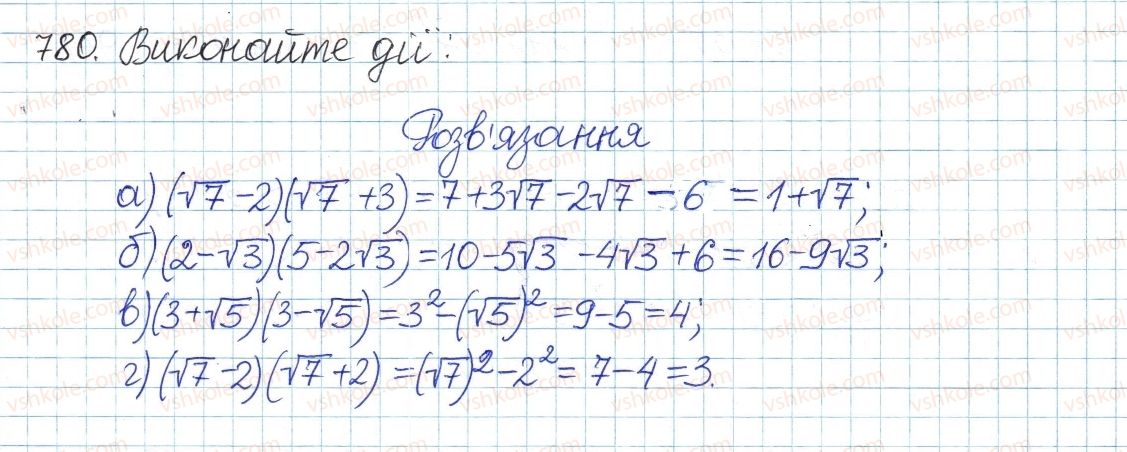 780. Виконайте дії:
Розв'язання
а) (√7 - 2)(√7 + 3) = 7 + 3√7 - 2√7 - 6 = 1 + √7;
б) (2 - √3)(5 - 2√3) = 10 - 5√3 - 4√3 + 6 = 16 - 9√3;
в) (3 + √5)(3 - √5) = 3² - (√5)² = 9 - 5 = 4;
г) (√7 - 2)(√7 + 2) = (√7)² - 2² = 7 - 4 = 3.